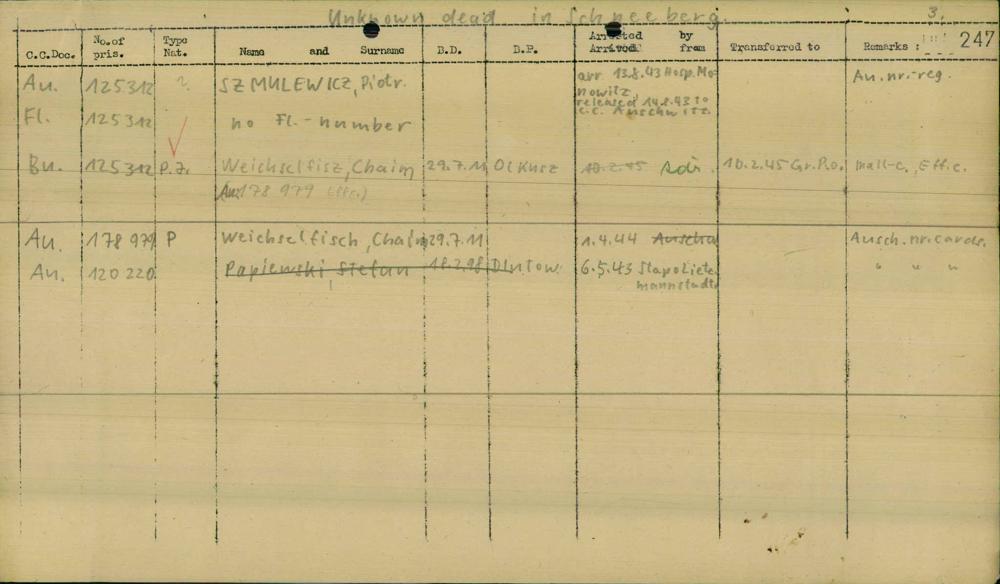 Unknown dead in Schneeberg.
3.
247
C.C.Doc. No. of pris. Type Nat. Name and Surname B.D. B.P. Arrested Arrived by from Transferred to Remarks :
Au. 125312 ? SZMULEWICZ, Piotr. arr. 13.8.43 Hosp. Monowitz, released 14.8.43 to C.C. Auschwitz. Au.nr.-reg.
Fl. 125312 no Fl.-number
Bu. 125312 P.J. Weichselfisz, Chaim 29.7.11 Olkusz 10.2.45 10.2.45 Gr.Ro. mall-c., Eff.c.
(Au. 178 979 Eff.)
Au. 178 979 P Weichselfisch, Chaim 29.7.11 1.4.44 Auschw Ausch.nr.cards.
Au. 120 220 Papiewski, Stefan 18.2.98 6.5.43 Stapo Lietzmannstadt " " "